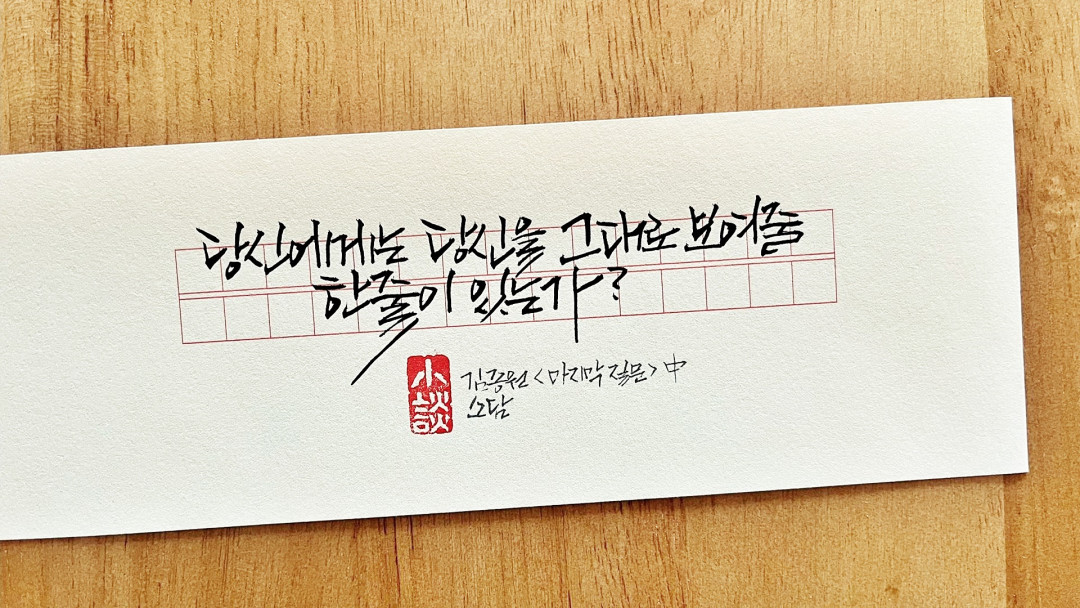 당신에게는 당신을 그대로 보여줄
한줄이 있는가?
小談
김종원 <마지막 질문> 中
소담